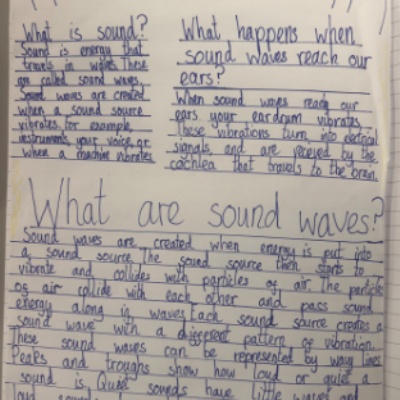 What is sound?
Sound is energy that
travels in waves. These
are called sound waves.
Sound waves are created
when a sound source
vibrates for example
instruments, your voice or
when a machine vibrates
What happens when
sound waves reach our
ears?
When sound waves reach our
ears your eardrum vibrates.
These vibrations turn into electrical
signals and are received by the
cochlea that travels to the brain.
What are sound waves?
Sound waves are created when energy is put into
a sound source. The sound source then starts to
vibrate and collides with particles of air. The particle
of air collide with each other and pass sound
energy along in waves. Each sound source creates a
sound wave with a different pattern of vibration.
These sound waves can be represented by wavy lines
Peaks and troughs show how loud or quiet a
sound is. Quiet sounds have little waves and
loud